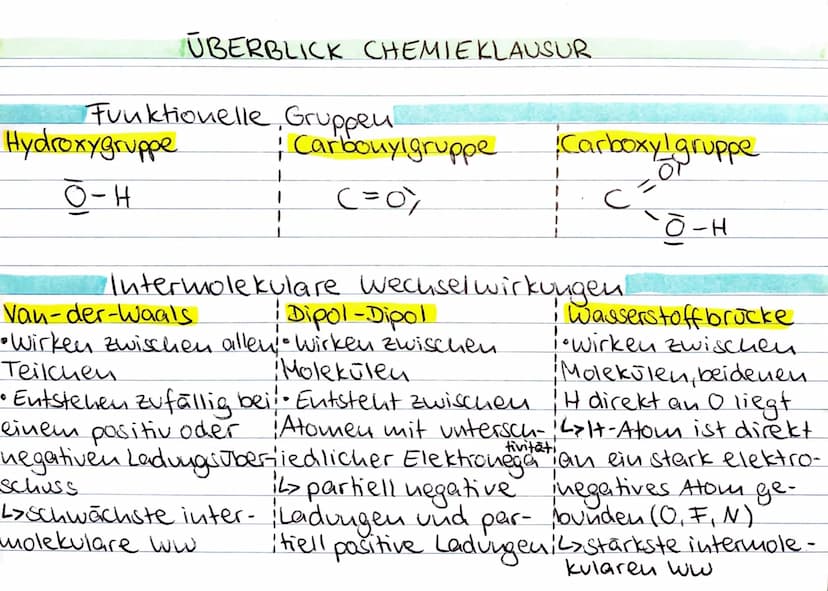 ÜBERBLICK CHEMIEKLAUSUR
Funktionelle Gruppen
Hydroxygruppe
O-H
Carbonylgruppe
C=O
Carboxylgruppe
O
C
O-H
Intermolekulare Wechselwirkungen
Van-der-Waals
• Wirken zwischen allen
Teilchen
• Entstehen zufällig bei
einem positiv oder
negativen Ladungsüber-
schuss
↳ schwächste inter-
molekulare WW
Dipol-Dipol
• Wirken zwischen
Molekülen
• Entsteht zwischen
Atomen mit untersch-
iedlicher Elektronegativität
↳ partiell negative
Ladungen und par-
tiell positive Ladungen
Wasserstoffbrücke
• Wirken zwischen
Molekülen, bei denen
H direkt an O liegt
↳ H-Atom ist direkt
an ein stark elektro-
negatives Atom ge-
bunden (O, F, N)
↳ stärkste intermole-
kularen WW